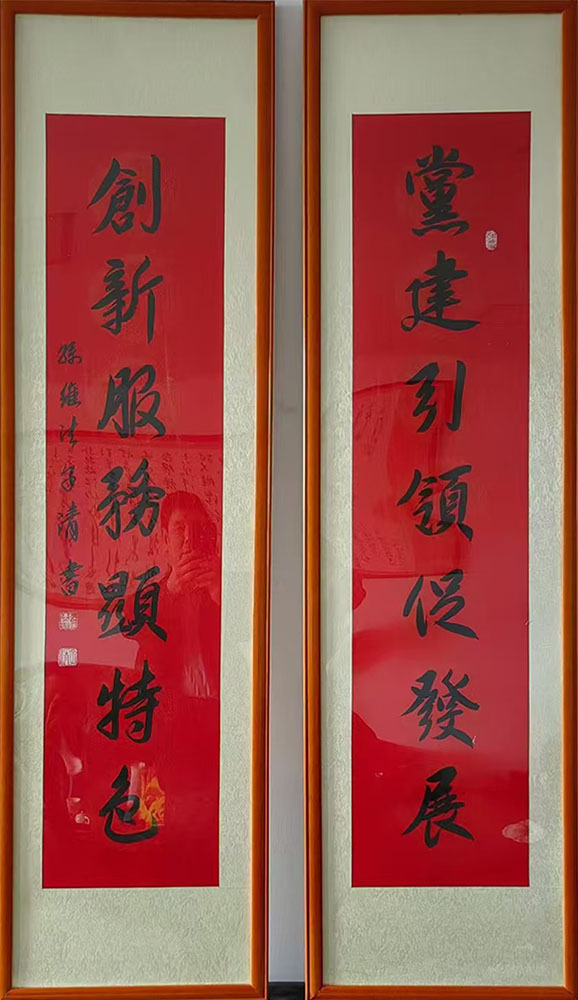 黨建引領促發展
創新服務顕特色
孫維法字清書